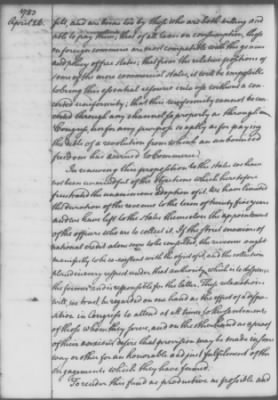 1783
April 26.
felt, and are borne too by those who are both willing and
able to pay them; that of all taxes on consumption, those
on foreign commerce are most compatible with the genius
and policy of free states; that from the relative positions of
some of the more commercial states, it will be impossible
to bring this essential resource into use without a con
certed uniformity; that this uniformity cannot be con
certed through any channel so properly as through
Congress, nor for any purpose so aptly as for paying
the debts of a revolution from which an unbounded
freedom has accrued to Commerce.
In renewing this proposition to the states we have
not been unmindful of the objections which heretofore
frustrated the unanimous adoption of it. We have limited
the duration of the revenue to the term of twenty five years
and we have left to the states themselves the appointment
of the officers who are to collect it. If the strict maxims of
national credit alone were to be consulted, the revenue ought
manifestly to be co-existent with the object of it, and the collection
placed in every respect under that authority which is to dispense
the former and is responsible for the latter. These relaxations
will, we trust, be regarded on one hand as the effect of a dispo
sition in Congress to attend at all times to the sentiments
of those whom they serve, and on the other hand as a proof
of their anxious desire that provision may be made in some
way or other for an honorable and just fulfilment of the
engagements which they have formed.
To render this fund as productive as possible and